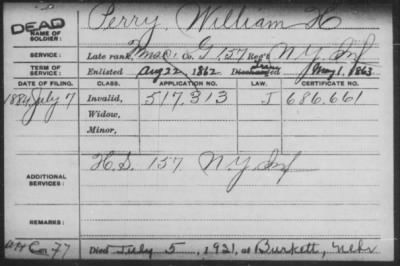 DEAD
NAME OF SOLDIER: Perry, William H
SERVICE: Late rank, Co. G, 157 Reg't N Y Inf
TERM OF SERVICE: Enlisted Aug 22, 1862 Discharged May 1, 1863
DATE OF FILING. CLASS. APPLICATION NO. LAW. CERTIFICATE NO.
1884 July 7 Invalid, 517,313 J 686,661
Widow,
Minor,
ADDITIONAL SERVICES: H.S. 157 N Y Inf
REMARKS:
Died July 5, 1921, at Burkett, Nebr